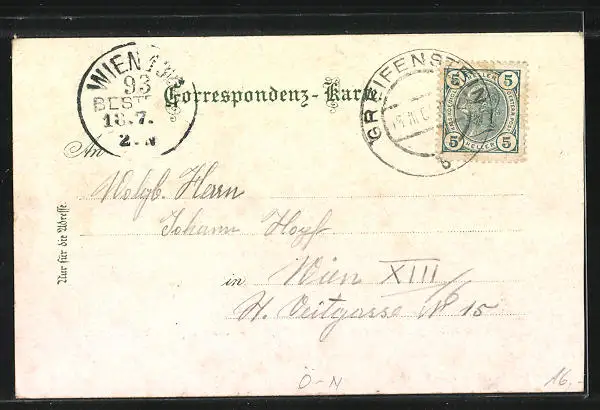 WIEN
93
BEST
18.7.
2-N
Correspondenz-Karte
GREIFENSTEIN
5 HELLER 5
5 HELLER 5
An
Wolgb. Herrn
Johann Hopf
in Wien XIII/
H. Veitgasse No 15
Nur für die Adresse.
Ö-N
16.-